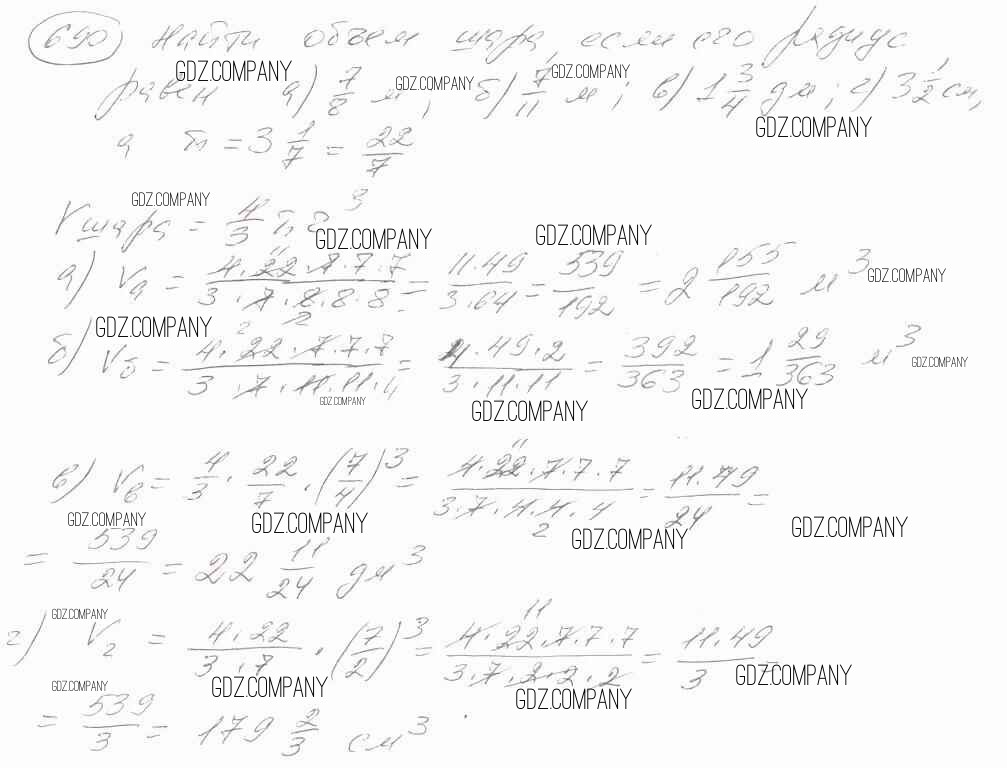 690 Найти объем шара, если его радиус
GDZ.COMPANY GDZ.COMPANY GDZ.COMPANY
равен а) 7/8 м; б) 7/11 м; в) 1 3/4 дм; г) 3 1/2 см,
GDZ.COMPANY
а π = 3 1/7 = 22/7
GDZ.COMPANY
V шара = 4/3 π r³
GDZ.COMPANY GDZ.COMPANY
а) Vа = 4·22·7·7·7 / 3·7·8·8·8 = 11·49 / 3·64 = 539/192 = 2 155/192 м³
GDZ.COMPANY
GDZ.COMPANY
б) Vб = 4·22·7·7·7 / 3·7·11·11·11 = 4·49·2 / 3·11·11 = 392/363 = 1 29/363 м³
GDZ.COMPANY
GDZ.COMPANY GDZ.COMPANY GDZ.COMPANY
в) Vв = 4/3 · 22/7 · (7/4)³ = 4·22·7·7·7 / 3·7·4·4·4 = 11·49 / 24 =
GDZ.COMPANY GDZ.COMPANY GDZ.COMPANY GDZ.COMPANY
= 539/24 = 22 11/24 дм³
GDZ.COMPANY
г) Vг = 4·22 / 3·7 · (7/2)³ = 4·22·7·7·7 / 3·7·2·2·2 = 11·49 / 3 =
GDZ.COMPANY GDZ.COMPANY GDZ.COMPANY GDZ.COMPANY
= 539/3 = 179 2/3 см³